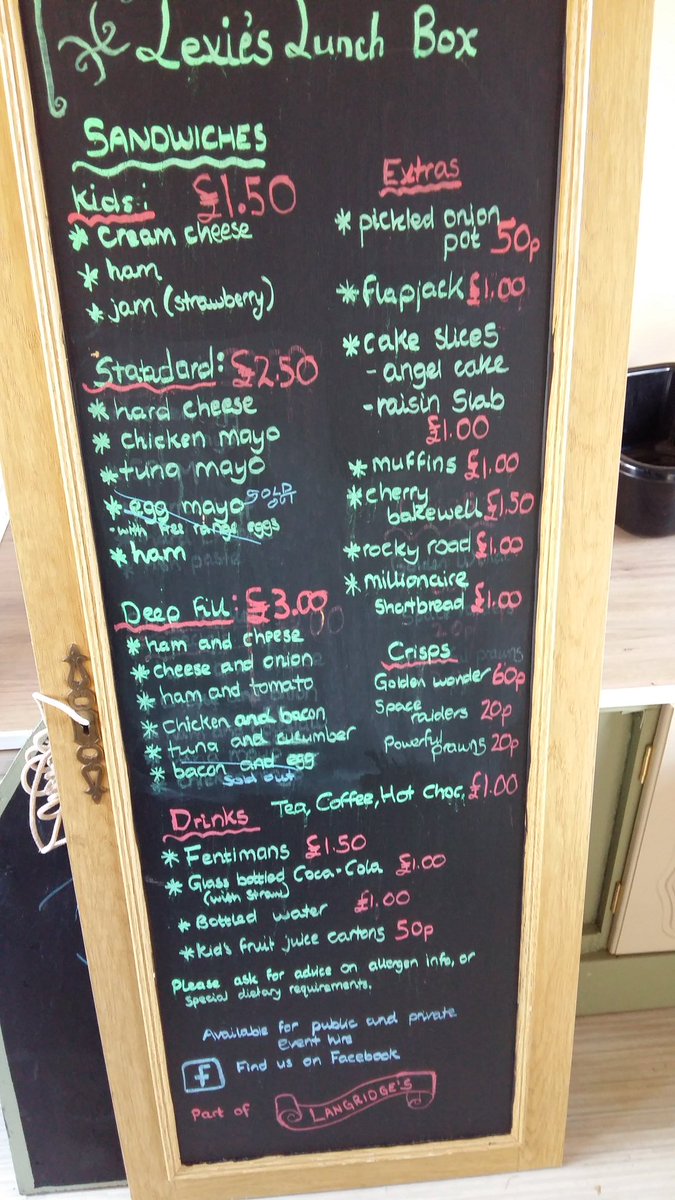 Lexie's Lunch Box
SANDWICHES
Kids: £1.50
* cream cheese
* ham
* jam (strawberry)
Standard: £2.50
* hard cheese
* chicken mayo
* tuna mayo
* egg mayo SOLD OUT
- with free range eggs
* ham
Deep Fill: £3.00
* ham and cheese
* cheese and onion
* ham and tomato
* Chicken and bacon
* tuna and cucumber
* bacon and egg
Sold out
Extras
* pickled onion
pot 50p
* flapjack £1.00
* cake slices
- angel cake
- raisin Slab
£1.00
* muffins £1.00
* cherry
bakewell £1.50
* rocky road £1.00
* millionaire
Shortbread £1.00
Crisps
Golden wonder 60p
Space
raiders 20p
Powerful
prawns 20p
Tea, Coffee, Hot Choc. £1.00
Drinks
* Fentimans £1.50
* Glass bottled Coca-Cola £1.00
(with straw)
* Bottled water £1.00
* Kid's fruit juice cartons 50p
Please ask for advice on allergen info, or
special dietary requirements.
Available for public and private
event hire
f Find us on Facebook
Part of LANGRIDGE'S